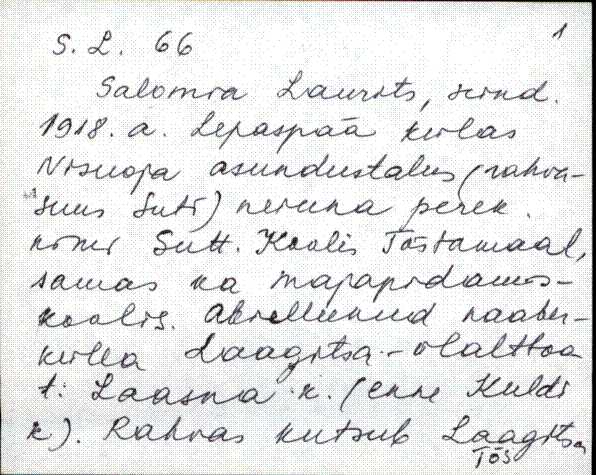 S. L. 66
1
Salomia Laurits, sünd.
1918. a. Lepaspää külas
Nisuoja asundustalus (rahva-
suus Suti) neiuna perek.
nimi Sutt. Koolis Tõstamaal,
samas ka majapidamis-
koolis. Abiellunud naaber-
külla Laagitsa -
t: Laasna k. (enne Kuldi
k). Rahvas kutsub Laagitsa
Tõs